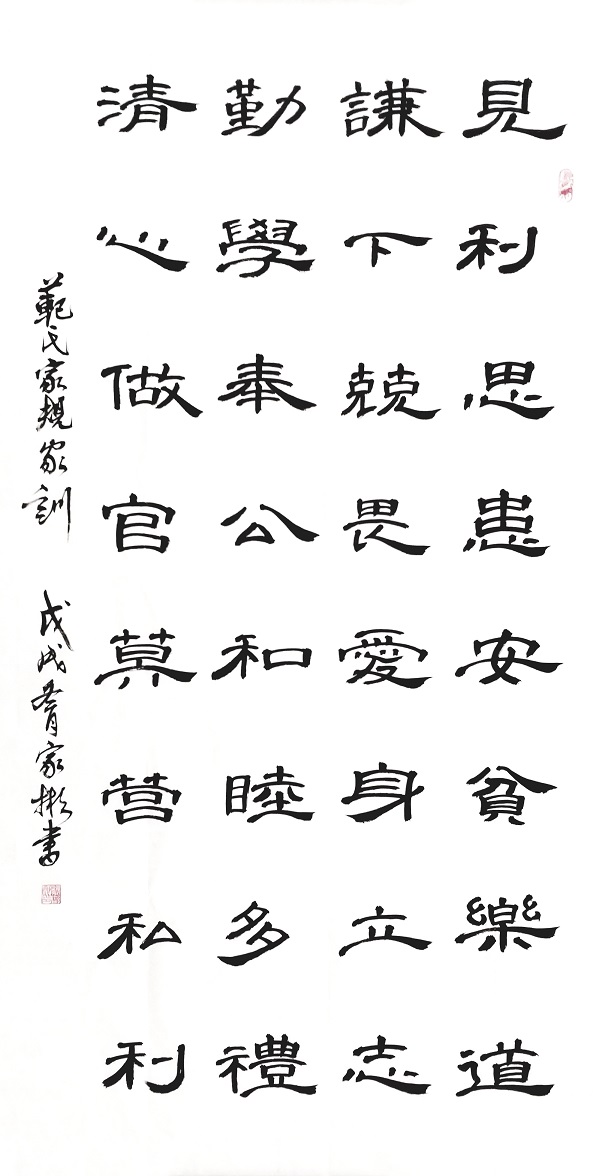 見利思患安貧樂道
謙下兢畏愛身立志
勤學奉公和睦多禮
清心做官莫營私利
範氏家規家訓 戊戌家彬書